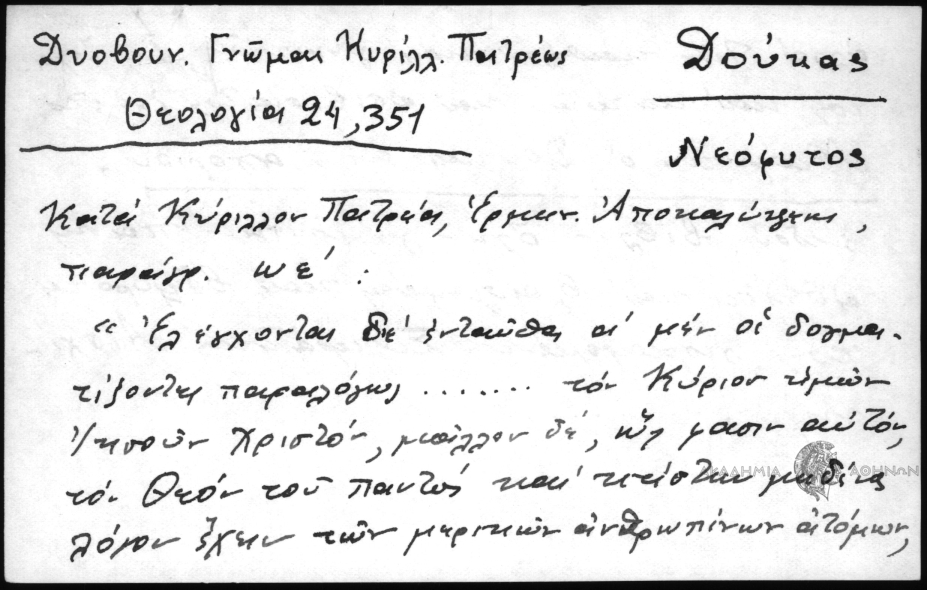 Δυοβουν. Γνῶμαι Κυρίλλ. Πατρέως
Θεολογία 24, 351
Δούκας
Νεόφυτος
Κατά Κύριλλον Πατρέα, Ἑρμην. Ἀποκαλύψεως,
παράγρ. ωε΄:
"Ἐλέγχονται δέ ἐνταῦθα αἱ μέν οἱ δογμα-
τίζοντες παραλόγως ....... τόν Κύριον ἡμῶν
Ἰησοῦν Χριστόν, μᾶλλον δέ, ὥς φασιν αὐτόν,
τόν Θεόν τοῦ παντός καί κτίστην μηδένα
λόγον ἔχειν τῶν μερικῶν ἀνθρωπίνων ἀτόμων,
ΑΚΑΔΗΜΙΑ ΑΘΗΝΩΝ